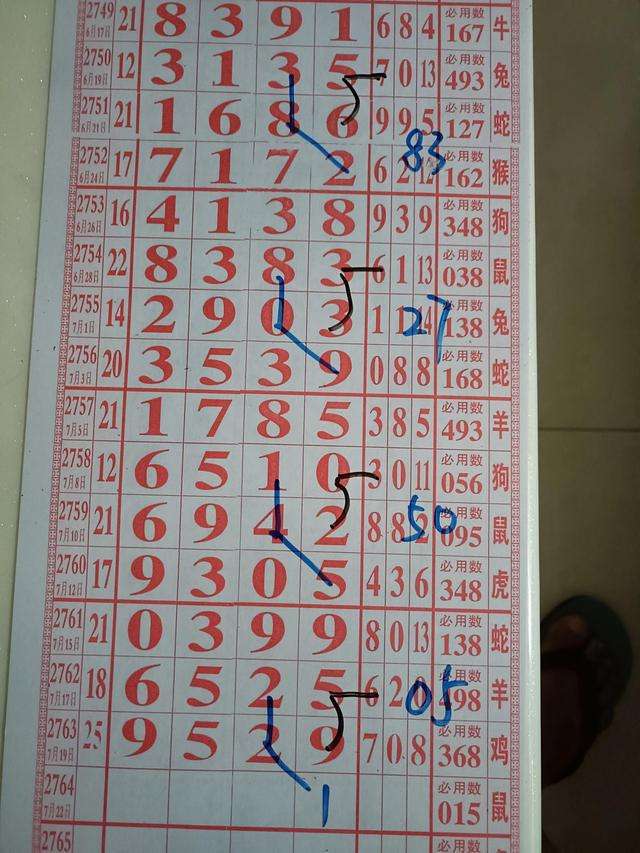 2749 6月17日 21 8 3 9 1 6 8 4 必用数 167 牛
2750 6月19日 12 3 1 3 5 7 0 13 必用数 493 兔
5
2751 6月21日 21 1 6 8 6 9 9 5 必用数 127 蛇
83
2752 6月24日 17 7 1 7 2 6 2 12 必用数 162 猴
2753 6月26日 16 4 1 3 8 9 3 9 必用数 348 狗
2754 6月28日 22 8 3 8 3 6 1 13 必用数 038 鼠
5
2755 7月1日 14 2 9 0 3 1 1 14 必用数 138 兔
27
2756 7月3日 20 3 5 3 9 0 8 8 必用数 168 蛇
2757 7月5日 21 1 7 8 5 3 8 5 必用数 493 羊
2758 7月8日 12 6 5 1 0 3 0 11 必用数 056 狗
5
2759 7月10日 21 6 9 4 2 8 8 2 必用数 095 鼠
50
2760 7月12日 17 9 3 0 5 4 3 6 必用数 348 虎
2761 7月15日 21 0 3 9 9 8 0 13 必用数 138 蛇
2762 7月17日 18 6 5 2 5 6 2 必用数 498 羊
05
5
2763 7月19日 25 9 5 2 9 7 0 8 必用数 368 鸡
2764 7月22日 必用数 015 鼠
1
2765 必用数